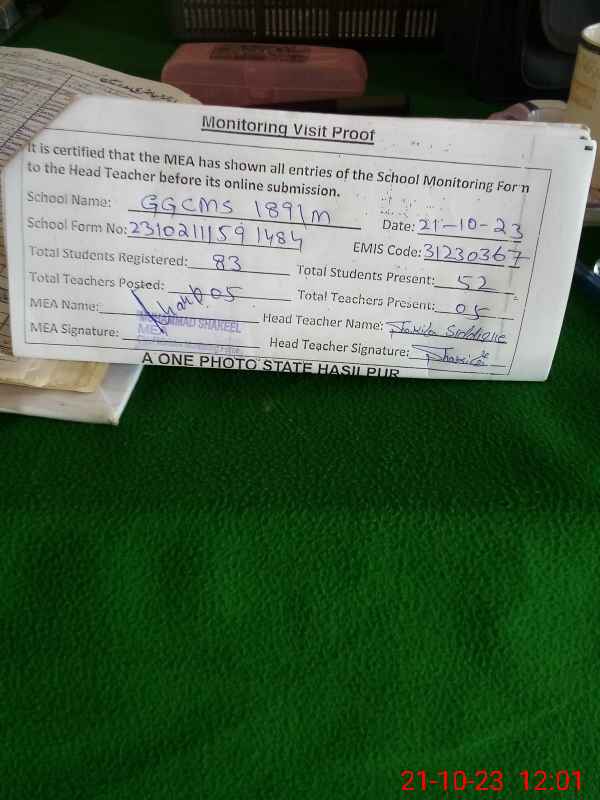 Monitoring Visit Proof
It is certified that the MEA has shown all entries of the School Monitoring Form
to the Head Teacher before its online submission.
School Name: GGCMS 189/M Date: 21-10-23
School Form No: 2310211159 1484 EMIS Code: 31230367
Total Students Registered: 83 Total Students Present: 52
Total Teachers Posted: 05 Total Teachers Present: 05
MEA Name: MUHAMMAD SHAKEEL Head Teacher Name:
MEA Signature: MEA Head Teacher Signature:
A ONE PHOTO STATE HASILPUR
21-10-23 12:01